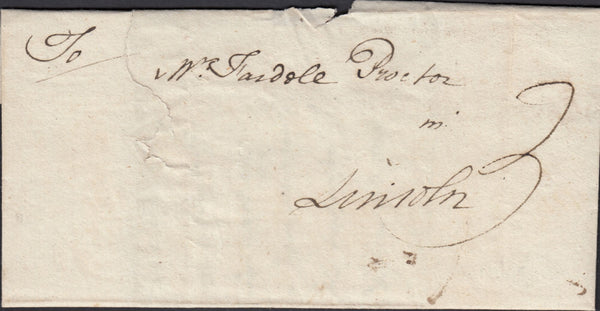 To
Mr. Fardell Proctor
in
Lincoln
3